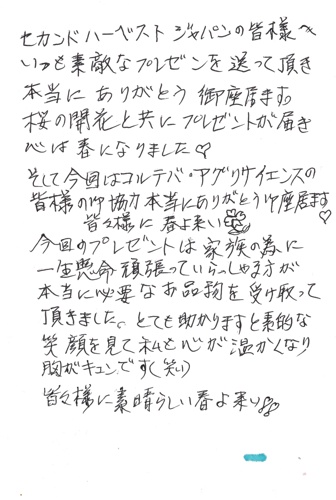 セカンドハーベストジャパンの皆様へ
いつも素敵なプレゼンを送って頂き
本当にありがとう御座居ます。
桜の開花と共にプレゼントが届き
心は春になりました♡
そして今回はコルテバ・アグリサイエンスの
皆様の御協力本当にありがとう御座居ます
皆々様に春よ来い
今回のプレゼントは家族の為に
一生懸命頑張っていらっしゃますが
本当に必要なお品物を受け取って
頂きました。とても助かりますと素的な
笑顔を見て私も心が温かくなり
胸がキュンです(笑い)
皆々様に素晴らしい春よ来い